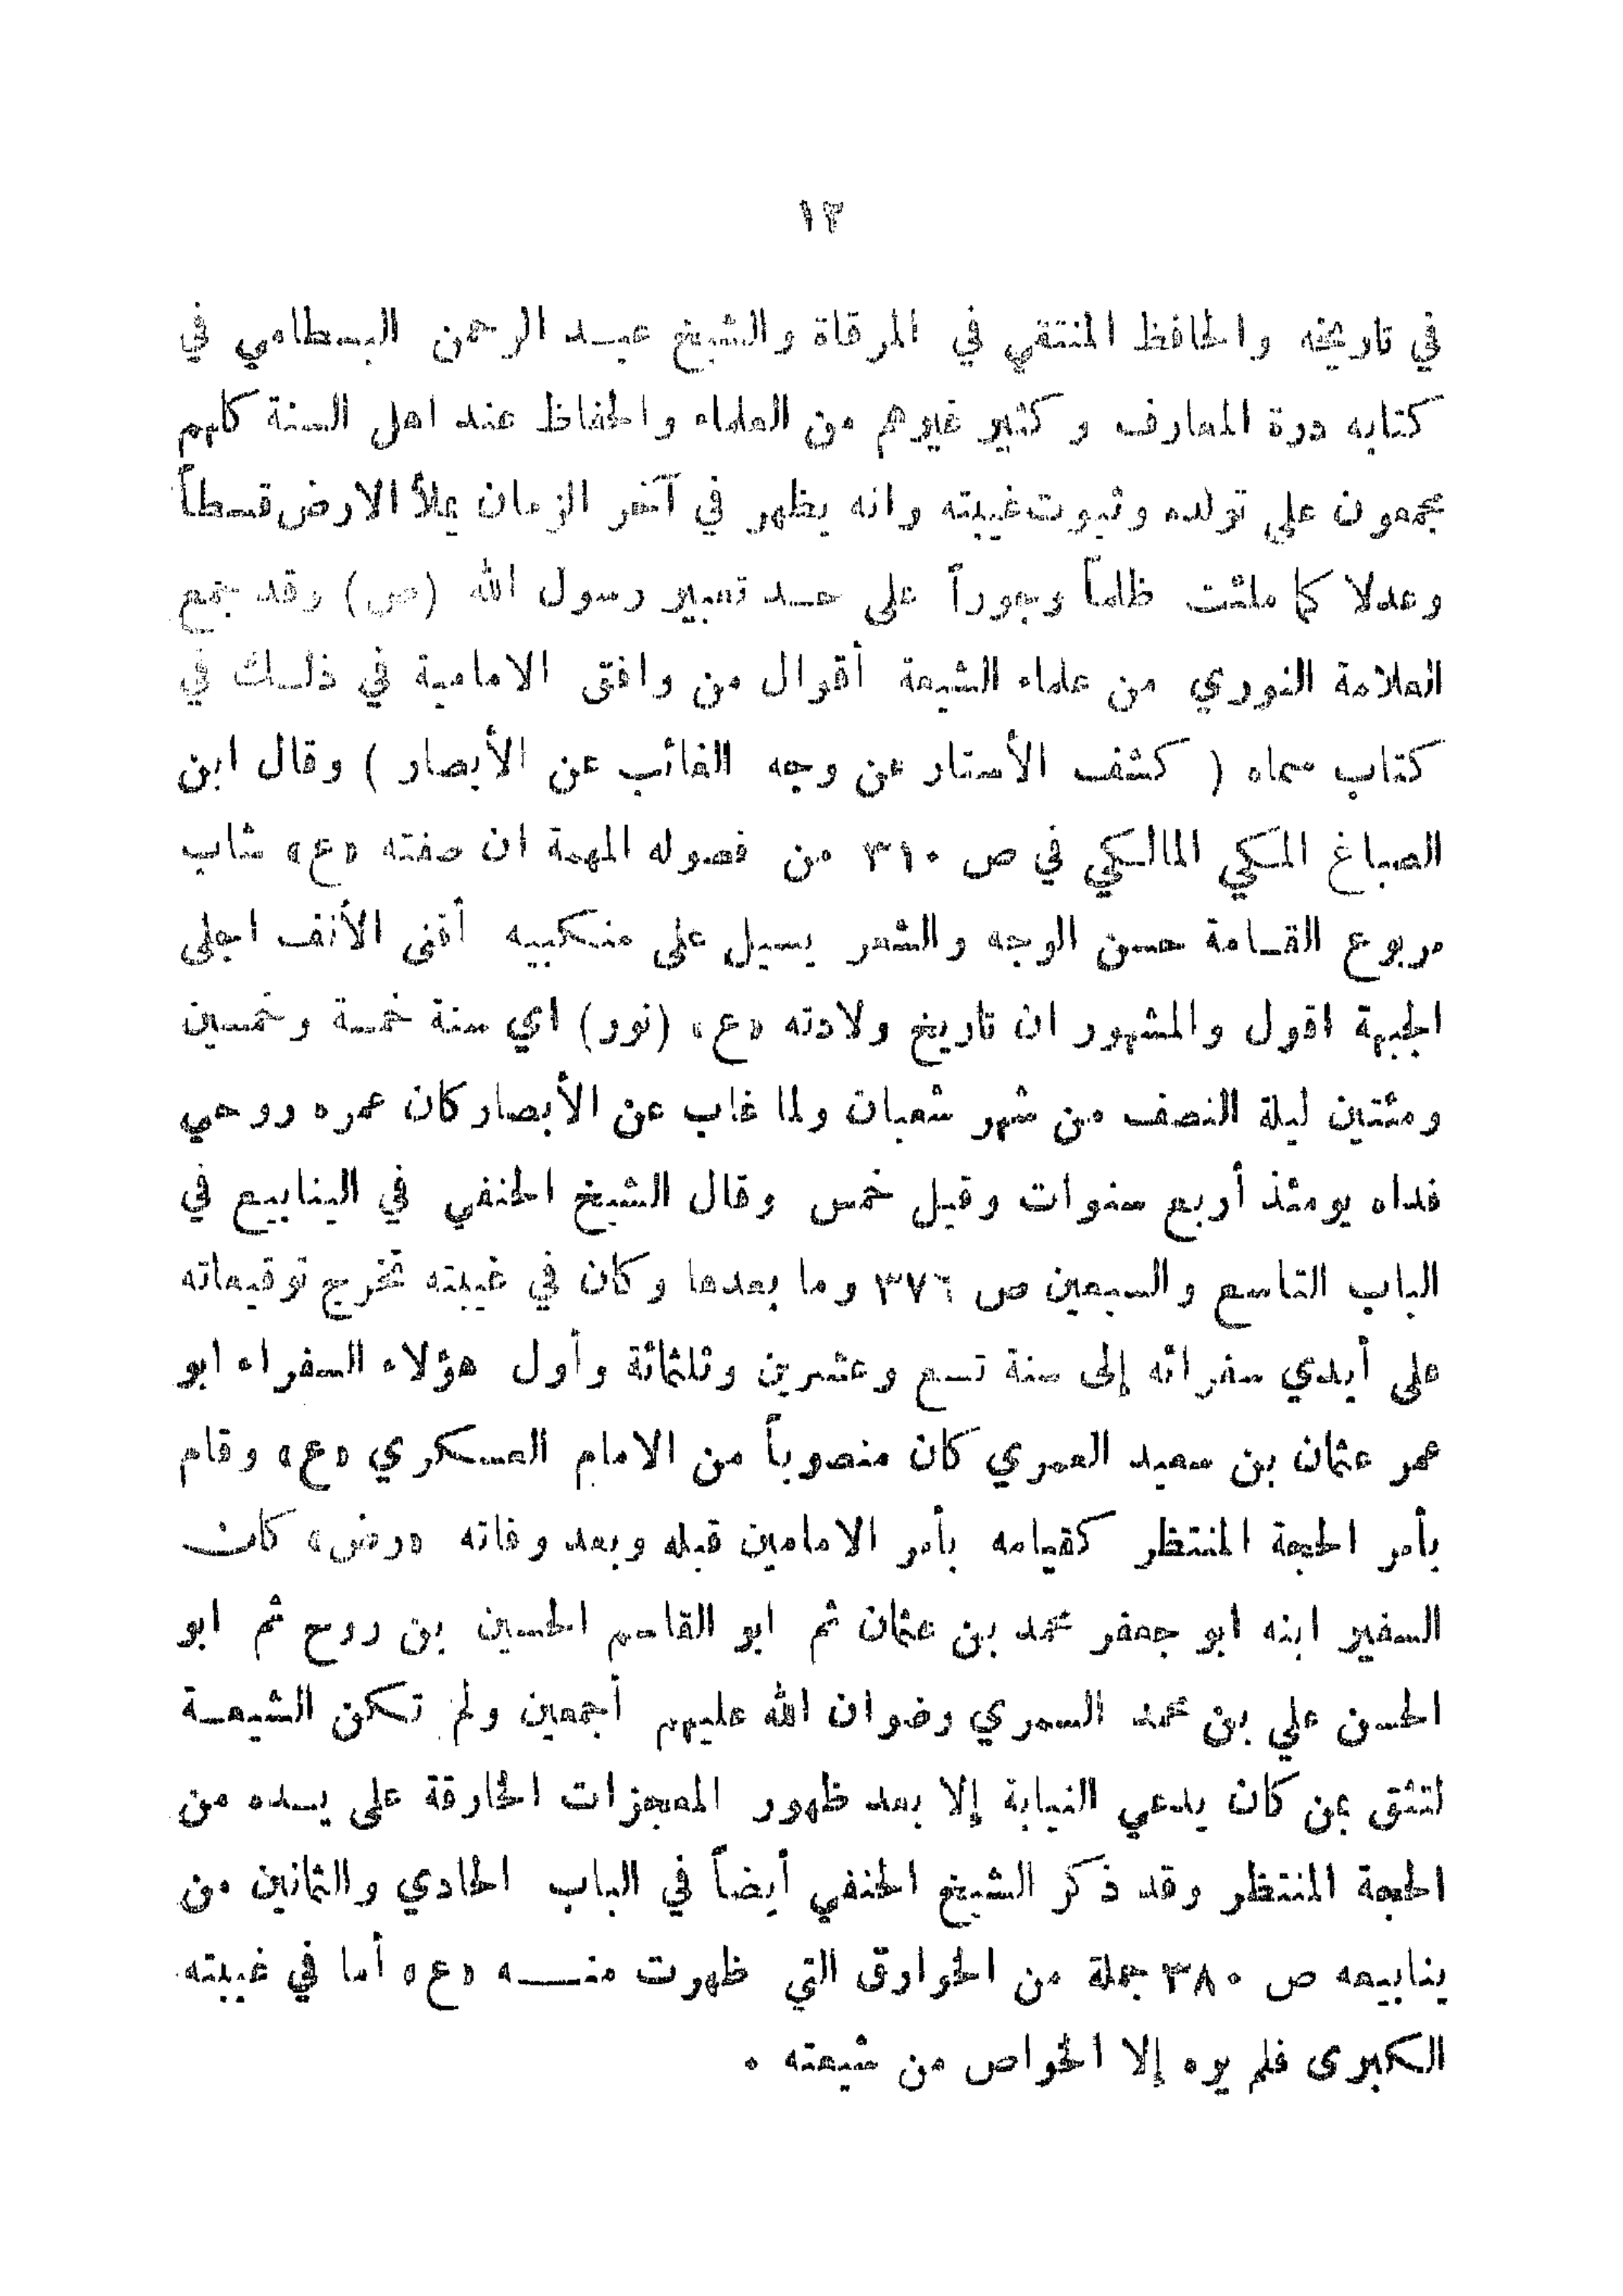 ١٣
في تاريخه والحافظ المنتقي في المرقاة والشيخ عبد الرحمن البسطامي في
كتابه درة المعارف وكثير غيرهم من العلماء والحفاظ عند اهل السنة كلهم
مجمعون على تولده وثبوت غيبته وانه يظهر في آخر الزمان يملأ الارض قسطاً
وعدلا كما ملئت ظلماً وجوراً على حد تعبير رسول الله (ص) وقد جمع
العلامة النوري من علماء الشيعة أقوال من وافق الامامية في ذلك في
كتاب سماه ( كشف الأستار عن وجه الغائب عن الأبصار ) وقال ابن
الصباغ المكي المالكي في ص ٣١٠ من فصوله المهمة ان صفته «ع» شاب
مربوع القامة حسن الوجه والشعر يسيل على منكبيه أقنى الأنف اجلى
الجبهة اقول والمشهور ان تاريخ ولادته «ع» (نور) اي سنة خمسة وخمسين
ومئتين ليلة النصف من شهر شعبان ولما غاب عن الأبصار كان عمره روحي
فداه يومئذ أربع سنوات وقيل خمس وقال الشيخ الحنفي في الينابيع في
الباب التاسع والسبعين ص ٣٧٦ وما بعدها وكان في غيبته تخرج توقيعاته
على أيدي سفرائه إلى سنة تسع وعشرين وثلثمائة وأول هؤلاء السفراء ابو
عمر عثمان بن سعيد العمري كان منصوباً من الامام العسكري «ع» وقام
بأمر الحجة المنتظر كقيامه بأمر الامامين قبله وبعد وفاته «رض» كان
السفير ابنه ابو جعفر محمد بن عثمان ثم ابو القاسم الحسين بن روح ثم ابو
الحسن علي بن محمد السمري رضوان الله عليهم أجمعين ولم تكن الشيعة
لتثق بمن كان يدعي النيابة إلا بعد ظهور المعجزات الخارقة على يده من
الحجة المنتظر وقد ذكر الشيخ الحنفي أيضاً في الباب الحادي والثمانين من
ينابيعه ص ٣٨٠ جملة من الخوارق التي ظهرت منه «ع» أما في غيبته
الكبرى فلم يره إلا الخواص من شيعته .